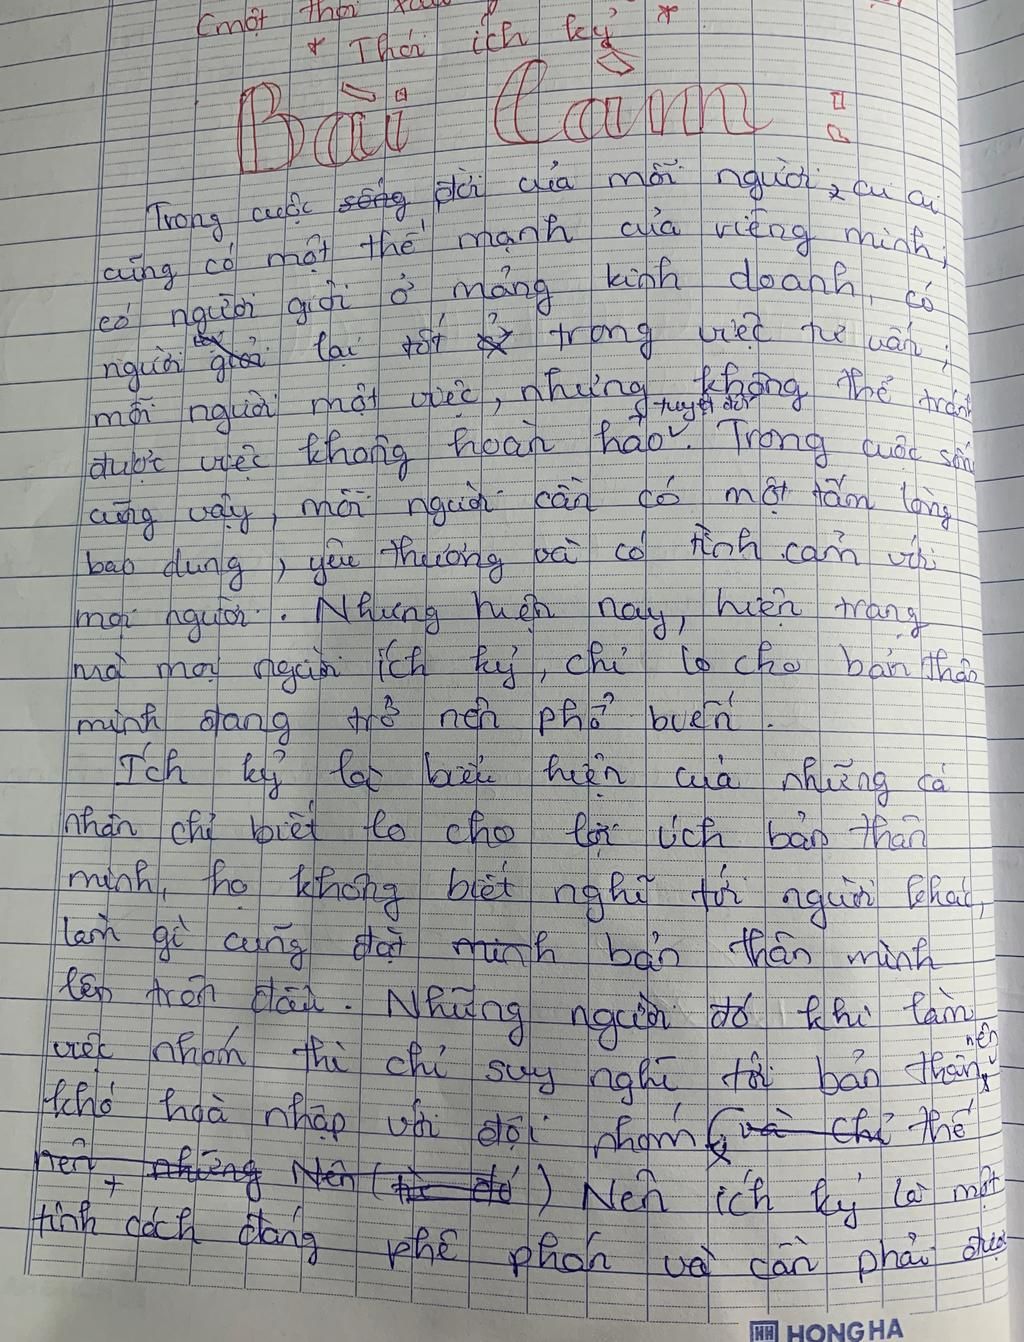 (một thói xấu
* Thói ích kỷ *
Bài làm:
Trong cuộc sống đời của mỗi người, ai ai
cũng có một thế mạnh của riêng mình,
có người giỏi ở mảng kinh doanh, có
người giỏi lại tốt ở trong việc tư vấn,
mỗi người một việc, nhưng không thể tránh
được việc không hoàn hảo tuyệt đối. Trong cuộc sống
cũng vậy, mỗi người cần có một tấm lòng
bao dung, yêu thương và có tình cảm với
mọi người. Nhưng hiện nay, hiện trạng
mà mọi người ích kỷ, chỉ lo cho bản thân
mình đang trở nên phổ biến.
Ích kỷ là biểu hiện của những cá
nhân chỉ biết lo cho lợi ích bản thân
mình, họ không biết nghĩ tới người khác,
làm gì cũng đặt mình bản thân mình
lên trên đầu. Những người đó khi làm
việc nhóm thì chỉ suy nghĩ tới bản thân nên
khó hoà nhập với đội nhóm (và chỉ thế
nên, những Nên (từ đó) Nên ích kỷ là một
tính cách đáng phê phán và cần phải được
HH HONG HA